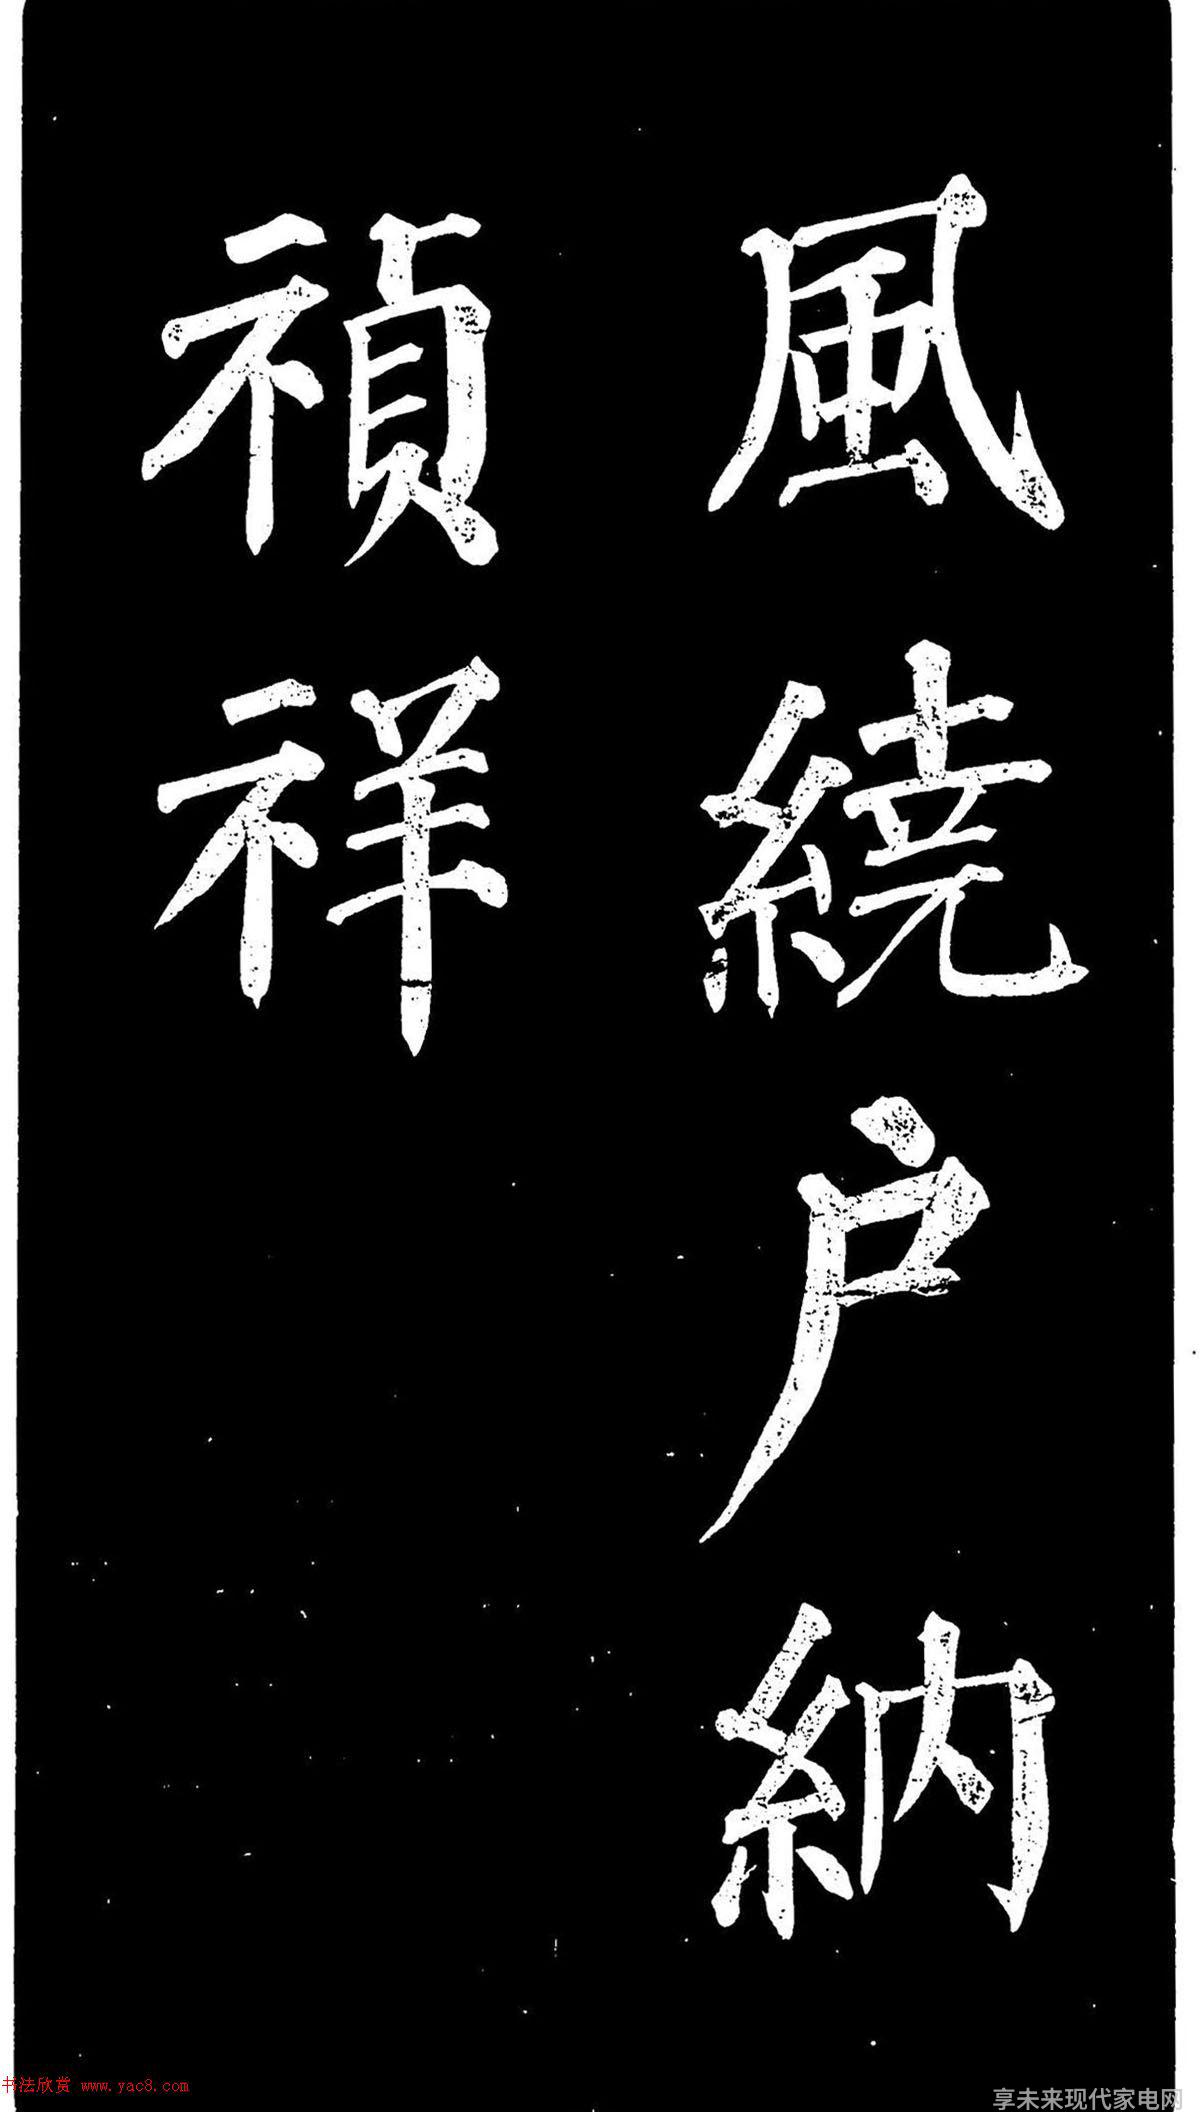 風繞户納
禎祥
书法欣赏 www.yac8.com
享未来现代家电网